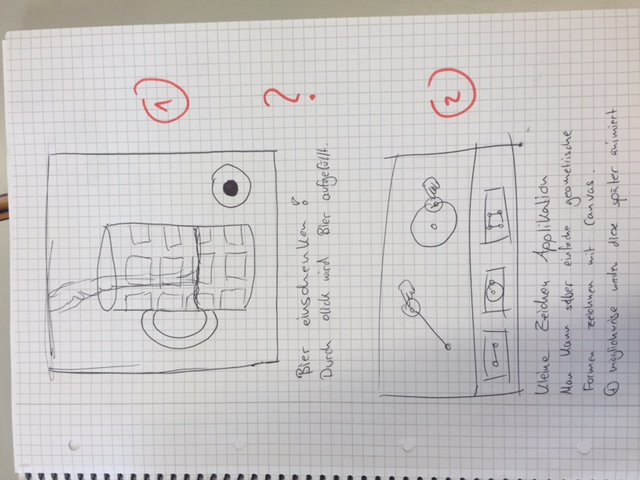 1
Bier einschenken!
Durch click wird Bier aufgefüllt.
?
2
Kleine Zeichen Applikation
Man kann selber einfache geometrische
Formen zeichnen mit Canvas.
möglichweise werden diese später animiert